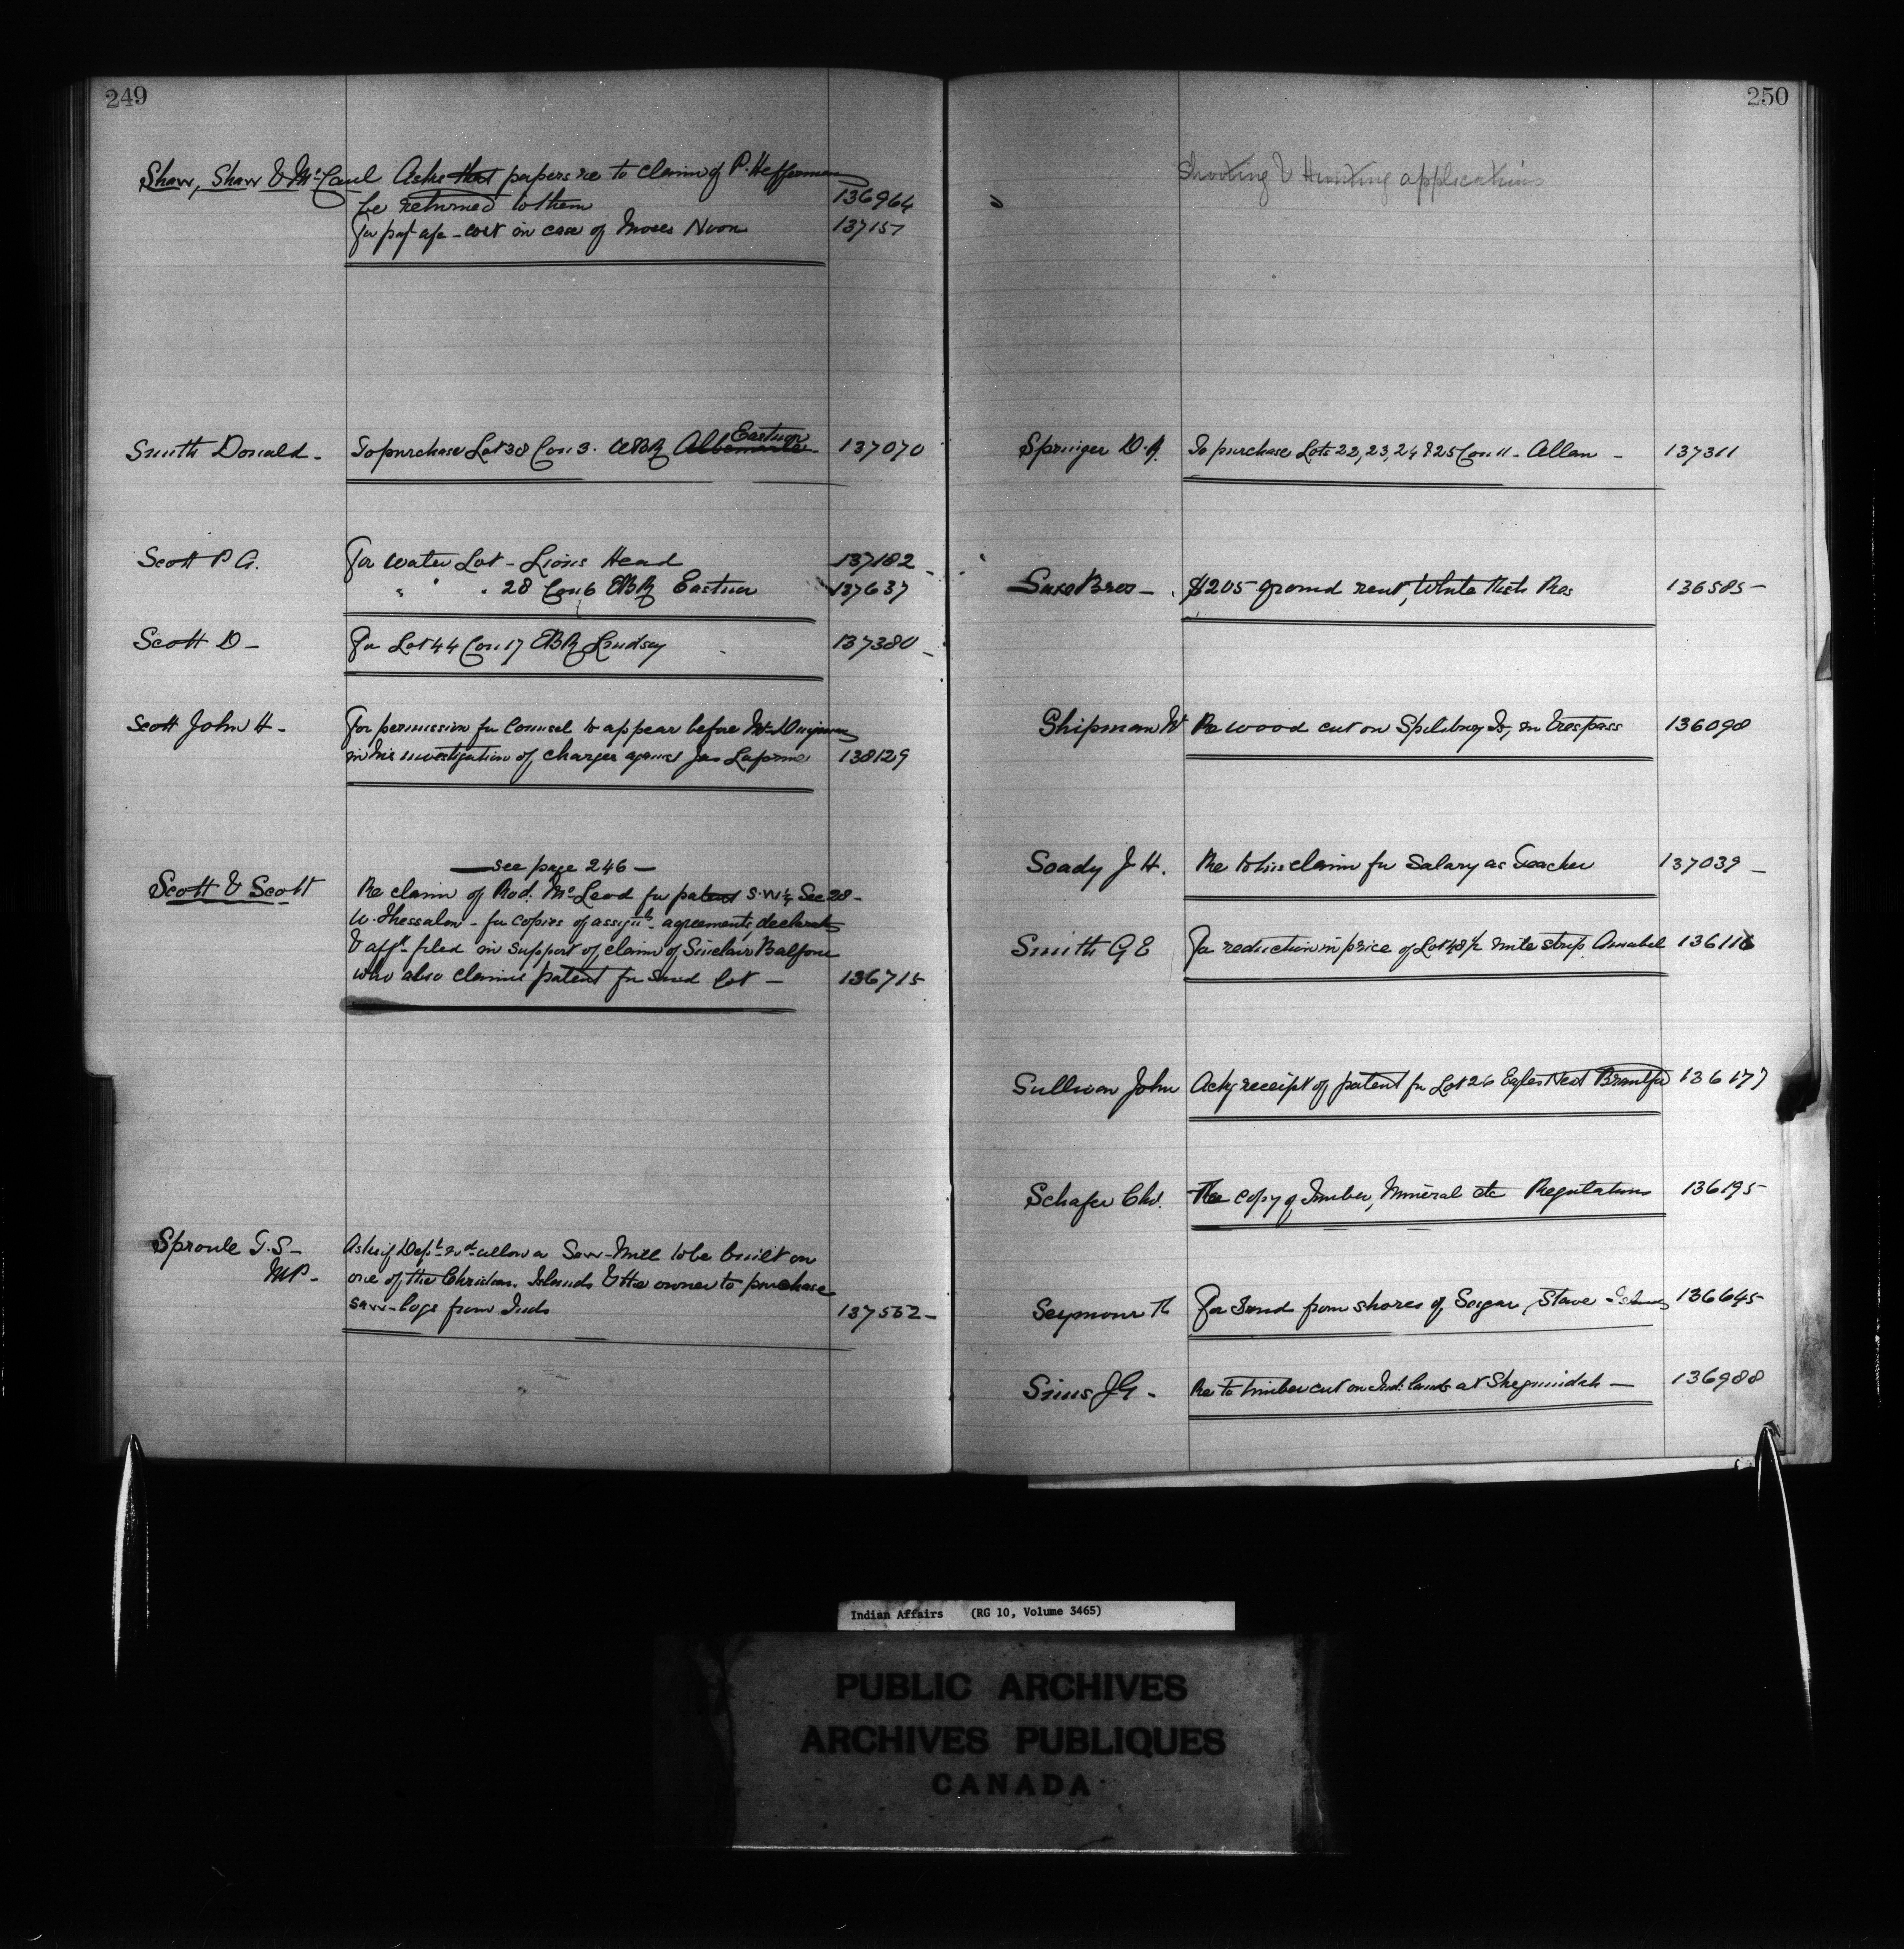 249
Shaw, Shaw & McCaul Asks that papers re to claim of P. Heffernan
be returned to them 136964
For payt of a/c - cost in case of Moses Noon 137157
Smith Donald - To purchase Lot 38 Con 3. WBR Albemarle Eastnor 137070
Scott P G. For water Lot - Lions Head 137182 -
" " " 28 Con 6 EBR Eastnor 137637
Scott D - For Lot 44 Con 17 EBR Lindsay 137380 -
Scott John H - For permission for Counsel to appear before Mr Dingman
in his investigation of charges against Jas Laforme 138129
- see page 246 -
Scott & Scott Re claim of Rod. McLeod for patent S.W¼ Sec 28 -
W. Thessalon - for copies of assigts - agreements, declarats
& affts filed in support of claim of Sinclair Balfour
who also claims patent for said lot - 136715
Sproule T. S - Asks if Dept wd allow a Saw-Mill to be built on
MP - one of the Christian Islands & the owner to purchase
saw-logs from Inds 137552 -
250
Shooting & Hunting applications
Springer D. A. To purchase Lots 22, 23, 24 & 25 Con 11 - Allan - 137311
Saxe Bros - $205 ground rent, White Fish Res 136585 -
Shipman W Re wood cut on Spilsbury Is, in trespass 136098
Soady J H. Re to his claim for Salary as Teacher 137039 -
Smith G E For reduction in price of Lot 48 ½ mile strip Amabel 136116
Sullivan John Ackg receipt of patent for Lot 26 Eagles Nest Brantford 136177
Schafer Chs. For copy of Timber, Mineral etc Regulations 136195
Seymour Th For Sand from shores of Sugar, Stave Islands 136645
Sims J G - Re to timber cut on Ind: lands at Sheguindah - 136988
Indian Affairs (RG 10, Volume 3465)
PUBLIC ARCHIVES
ARCHIVES PUBLIQUES
CANADA